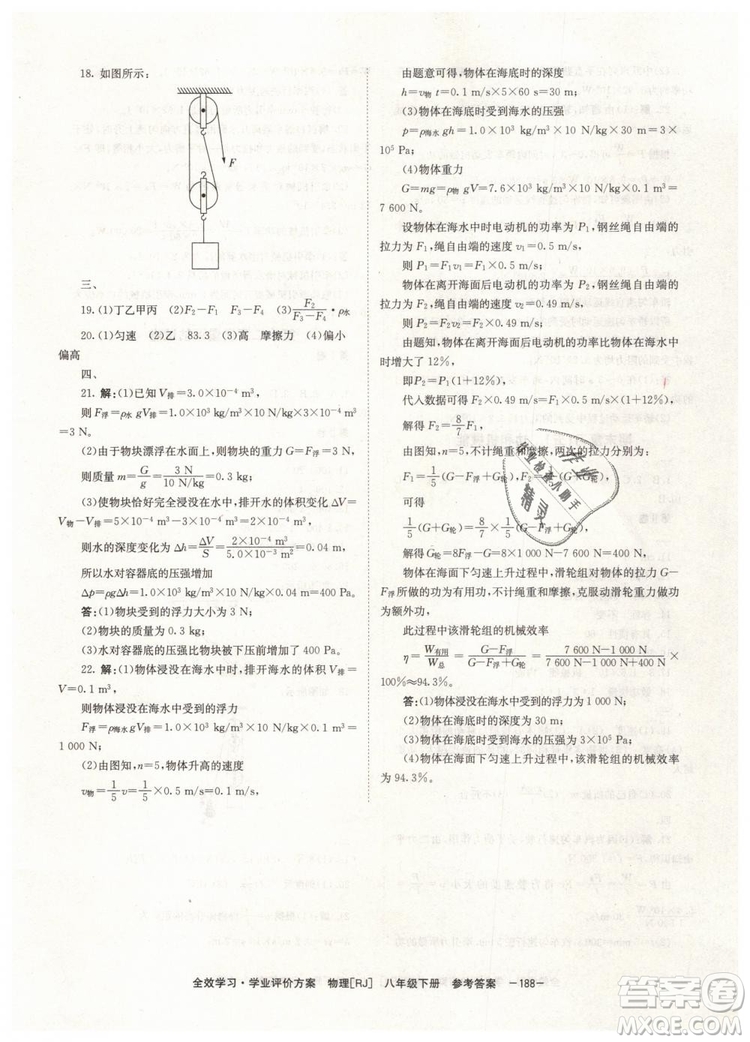 18. 如图所示:
F
三、
19. (1)丁乙甲丙 (2)F₂－F₁ F₃－F₄ (3)F₂/(F₃－F₄)·ρ水
20. (1)匀速 (2)乙 83.3 (3)高 摩擦力 (4)偏小
偏高
四、
21. 解:(1)已知 V排=3.0×10⁻⁴ m³,
则 F浮=ρ水 gV排=1.0×10³ kg/m³×10 N/kg×3.0×10⁻⁴
m³=3 N。
(2)由于物块漂浮在水面上,则物块的重力 G=F浮=3 N,
则质量 m=G/g=3 N/10 N/kg=0.3 kg。
(3)使物块恰好完全浸没在水中,排开水的体积变化 ΔV=
V物－V排=5×10⁻⁴ m³－3×10⁻⁴ m³=2×10⁻⁴ m³,
则水的深度变化为 Δh=ΔV/S=2×10⁻⁴ m³/5.0×10⁻³ m²=0.04 m,
所以水对容器底的压强增加
Δp=ρgΔh=1.0×10³ kg/m³×10 N/kg×0.04 m=400 Pa。
答:(1)物块受到的浮力大小为 3 N;
(2)物块的质量为 0.3 kg;
(3)水对容器底的压强比物块被下压前增加了 400 Pa。
22. 解:(1)物体浸没在海水中时,排开海水的体积 V排=
V=0.1 m³,
则物体浸没在海水中受到的浮力
F浮=ρ海水 gV排=1.0×10³ kg/m³×10 N/kg×0.1 m³=
1 000 N;
(2)由图知,n=5,物体升高的速度
v物=1/5 v=1/5×0.5 m/s=0.1 m/s,
由题意可得,物体在海底时的深度
h=v物 t=0.1 m/s×5×60 s=30 m;
(3)物体在海底时受到海水的压强
p=ρ海水 gh=1.0×10³ kg/m³×10 N/kg×30 m=3×
10⁵ Pa;
(4)物体重力
G=mg=ρ物 gV=7.6×10³ kg/m³×10 N/kg×0.1 m³=
7 600 N。
设物体在海水中时电动机的功率为 P₁,钢丝绳自由端的
拉力为 F₁,绳自由端的速度 v₁=0.5 m/s,
则 P₁=F₁v₁=F₁×0.5 m/s;
物体在离开海面后电动机的功率为 P₂,钢丝绳自由端的
拉力为 F₂,绳自由端的速度 v₂=0.49 m/s,
则 P₂=F₂v₂=F₂×0.49 m/s;
由题知,物体在离开海面后电动机的功率比物体在海水中
时增大了 12%,
即P₂=P₁(1+12%),
代入数据可得 F₂×0.49 m/s=F₁×0.5 m/s(1+12%),
解得 F₂=8/7 F₁,
由图知,不计绳重和摩擦,两次的拉力分别为
F₁=1/5(G+G轮－F浮),F₂=1/5(G+G轮),
可得
1/5(G+G轮)=8/7×1/5(G+G轮－F浮)
解得 G轮=8F浮－G=8×1 000 N－7 600 N=400 N,
物体在海面下匀速上升过程中,滑轮组对物体的拉力 G－
F浮做功为有用功,不计绳重和摩擦,克服动滑轮重力做功
为额外功,
此过程中该滑轮组的机械效率
η=W有用/W总=(G－F浮)/(G－F浮+G轮)=(7 600 N－1 000 N)/(7 600 N－1 000 N+400 N)×
100%≈94.3%。
答:(1)物体浸没在海水中受到的浮力为 1 000 N;
(2)物体在海底时的深度为 30 m;
(3)物体在海底时受到海水的压强为 3×10⁵ Pa;
(4)物体在海面下匀速上升过程中,该滑轮组的机械效率
为 94.3%。
作业
作业检查小助手
精灵
全效学习·学业评价方案 物理[RJ] 八年级下册 参考答案 －188－
答案圈
MXQE.COM